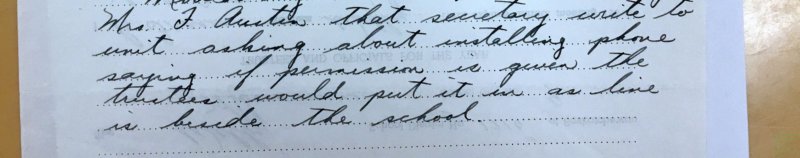 Mrs. F Austin that secretary write to
unit asking about installing phone
saying if permission is given the
trustees would put it in as line
is beside the school.